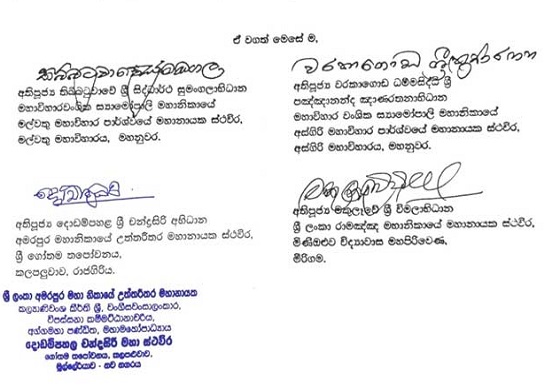 ඒ වගත් මෙසේ ම,
අතිපූජ්‍ය තිබ්බටුවාවේ ශ්‍රී සිද්ධාර්ථ සුමංගලාභිධාන
මහාවිහාරවංශික ස්‍යාමෝපාලි මහානිකායේ
මල්වතු මහාවිහාර පාර්ශ්වයේ මහානායක ස්ථවිර,
මල්වතු මහාවිහාරය, මහනුවර.
වරකාගොඩ
අතිපූජ්‍ය වරකාගොඩ ධම්මසිද්ධි ශ්‍රී
පඤ්ඤානන්ද ඤාණරතනාභිධාන
මහාවිහාර වංශික ස්‍යාමෝපාලි මහානිකායේ
අස්ගිරි මහාවිහාර පාර්ශ්වයේ මහානායක ස්ථවිර,
අස්ගිරි මහාවිහාරය, මහනුවර.
අතිපූජ්‍ය දොඩම්පහළ ශ්‍රී චන්ද්‍රසිරි අභිධාන
අමරපුර මහානිකායේ උත්තරීතර මහානායක ස්ථවිර,
ශ්‍රී ගෝතම තපෝවනය,
කලපළුවාව, රාජගිරිය.
අතිපූජ්‍ය මකුලෑවේ ශ්‍රී විමලාභිධාන
ශ්‍රී ලංකා රාමඤ්ඤ මහානිකායේ මහානායක ස්ථවිර,
මිණිඔළුව විද්‍යාවාස මහපිරිවෙණ,
මීරිගම.
ශ්‍රී ලංකා අමරපුර මහා නිකායේ උත්තරීතර මහානායක
කල්‍යාණිවංශ කීර්ති ශ්‍රී, වංගීසවංසාලංකාර,
විපස්සනා කම්මට්ඨානාචරිය,
අග්ගමහා පණ්ඩිත, මහාමහෝපාධ්‍යාය
දොඩම්පහල චන්ද්‍රසිරි මහා ස්ථවිර
ගෝතම තපෝවනය, කලපළුවාව,
මුල්ලේරියාව - නව නගරය